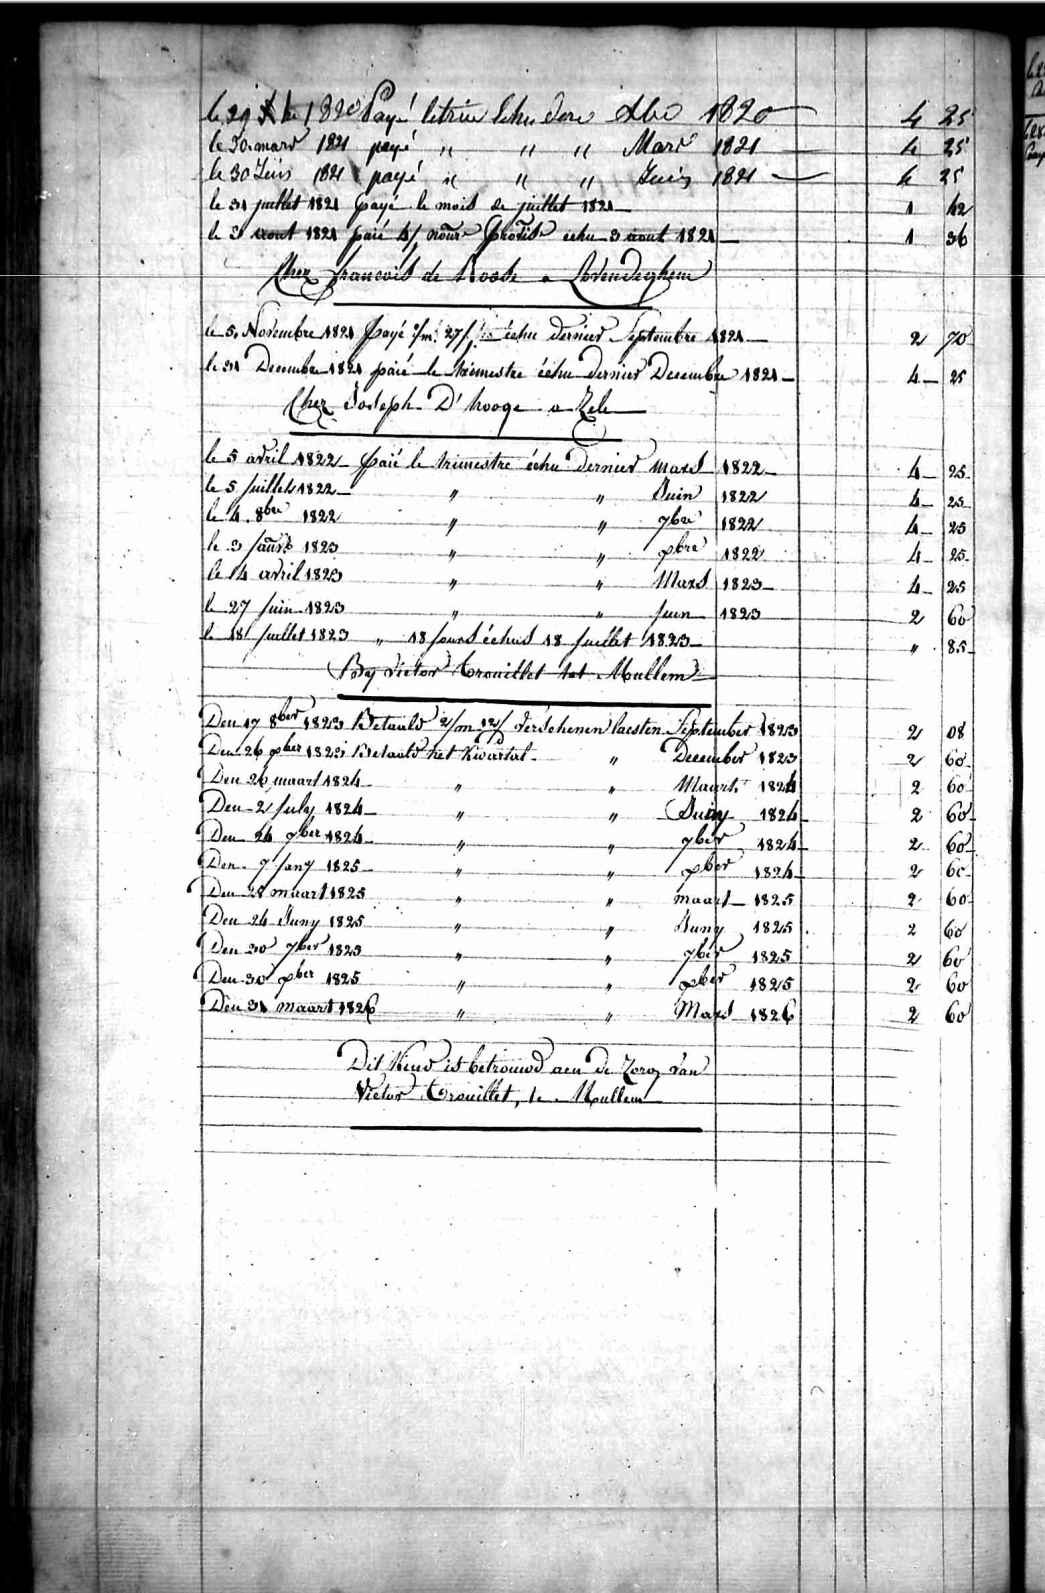 le 29 Xbre 1820 Payé letrim Echu dere Xbre 1820 4 25
le 30 mars 1821 payé " " " Mars 1821 4 25
le 30 Juin 1821 payé " " " Juin 1821 4 25
le 31 juillet 1821 payé le mois de juillet 1821 1 42
le 3 aout 1821 paié échu 3 aout 1821 1 36
Chez francois de Roose a Lovendeghem
le 5 Novembre 1821 Payé 2/m 27/j échu dernier Septembre 1821 2 70
le 31 Decembre 1821 paié le trimestre échu dernier Decembre 1821 4 25
Chez Joseph D'hooge a Zele
le 5 avril 1822 paié le trimestre échu dernier mars 1822 4 25
le 5 juillet 1822 " " Juin 1822 4 25
le 4 8bre 1822 " " 7bre 1822 4 25
le 3 janv. 1823 " " xbre 1822 4 25
le 4 avril 1823 " " Mars 1823 4 25
le 27 juin 1823 " " juin 1823 2 60
le 18 juillet 1823 " 18 jours échus 18 juillet 1823 " 85
By Victor Trouillet tot Mullem
Den 17 8ber 1823 Betaald 2/m 12/d verschenen laesten September 1823 2 08
Den 26 xber 1823 Betaald het Kwartal " December 1823 2 60
Den 26 maart 1824 " " Maart 1824 2 60
Den 2 july 1824 " " Juny 1824 2 60
Den 24 7ber 1824 " " 7ber 1824 2 60
Den 7 jany 1825 " " xber 1824 2 60
Den 28 maart 1825 " " maart 1825 2 60
Den 24 Juny 1825 " " Juny 1825 2 60
Den 30 7ber 1825 " " 7ber 1825 2 60
Den 30 xber 1825 " " xber 1825 2 60
Den 31 maart 1826 " " Mars 1826 2 60
Dit Kind is betrouwd aen de Zorg van
Victor Trouillet, te Mullem